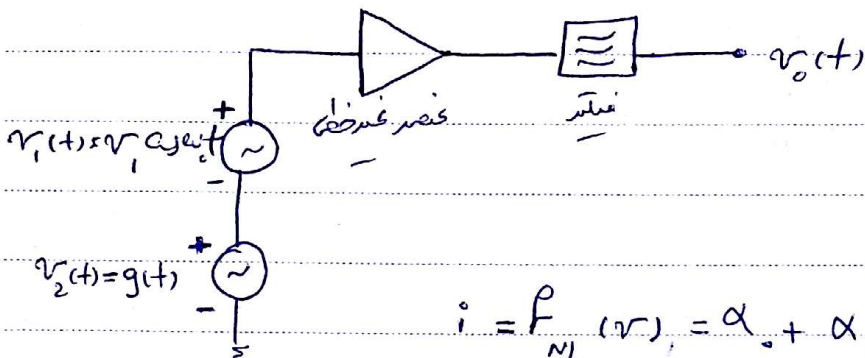 v₀(t)
عنصر غیرخطی
فیلتر
v₁(t) = v₁ cos ω₀t
v₂(t) = g(t)
i = f_Nl (v) = α₀ + α